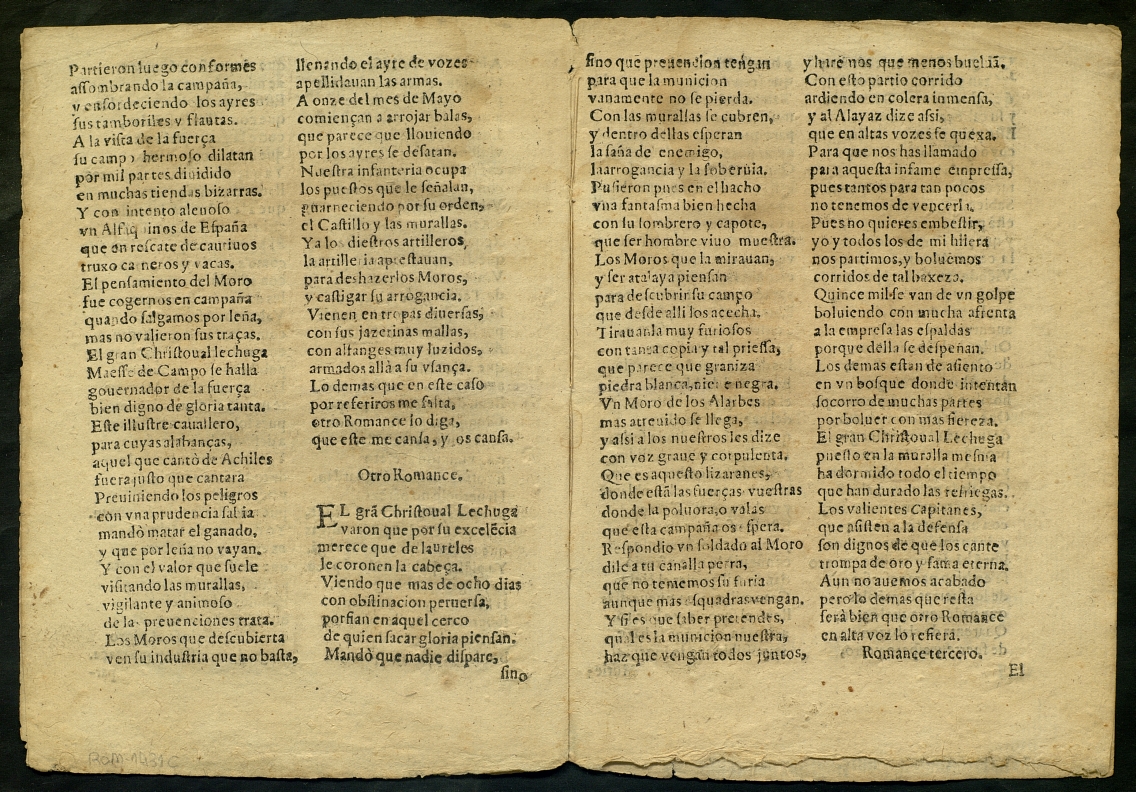 Partieron luego conformes
assombrando la campaña,
y ensordeciendo los ayres
sus tamboriles y flautas.
A la vista de la fuerça
su campo hermoso dilatan
por mil partes diuidido
en muchas tiendas bizarras.
Y con intento aleuoso
vn Alfaquinos de España
que en rescate de cautiuos
truxo carneros y vacas.
El pensamiento del Moro
fue cogernos en campaña
quando salgamos por leña,
mas no valieron sus traças.
El gran Christoual lechuga
Maesse de Campo se halla
gouernador de la fuerça
bien digno de gloria tanta.
Este illustre cauallero,
para cuyas alabanças,
aquel que cantò de Achiles
fuera justo que cantara
Preuiniendo los peligros
con vna prudencia sabia
mandò matar el ganado,
y que por leña no vayan.
Y con el valor que suele
visitando las murallas,
vigilante y animoso
de las preuenciones trata.
Los Moros que descubierta
ven su industria que no basta,
llenando el ayre de vozes
apellidauan las armas.
A onze del mes de Mayo
comiençan a arrojar balas,
que parece que llouiendo
por los ayres se desatan.
Nuestra infanteria ocupa
los puestos que le señalan,
guarneciendo por su orden,
el Castillo y las murallas.
Ya los diestros artilleros,
la artilleria aprestauan,
para deshazer los Moros,
y castigar su arrogancia.
Vienen en tropas diuersas,
con sus jazerinas mallas,
con alfanges muy luzidos,
armados allà a su vsança.
Lo demas que en este caso
por referiros me falta,
otro Romance lo diga,
que este me cansa, y os cansa.
Otro Romance.
EL grã Christoual Lechuga
varon que por su excelẽcia
merece que de laureles
le coronen la cabeça.
Viendo que mas de ocho dias
con obstinacion peruersa,
porfian en aquel cerco
de quien sacar gloria piensan.
Mandò que nadie dispare,
sino
sino que preuencion tengan
para que la municion
vanamente no se pierda.
Con las murallas se cubren,
y dentro dellas esperan
la saña del enemigo,
la arrogancia y la soberuia.
Pusieron pues en el hacho
vna fantasma bien hecha
con su sombrero y capote,
que ser hombre viuo muestra.
Los Moros que la mirauan,
y ser atalaya piensan
para descubrir su campo
que desde alli los acecha.
Tirauanla muy furiosos
con tanta copia y tal priessa,
que parece que graniza
piedra blanca, nieue negra.
Vn Moro de los Alarbes
mas atreuido se llega,
y assi a los nuestros les dize
con voz graue y corpulenta.
Que es aquesto lizaranes,
donde estã las fuerças vuestras
donde la poluora, o valas
que esta campaña os espera.
Respondio vn soldado al Moro
dile a tu canalla perra,
que no tememos su furia
aunque mas esquadras vengan.
Y si es que saber pretendes,
qual es la municion nuestra,
haz que vengan todos juntos,
y harè nos que menos bueluã.
Con esto partio corrido
ardiendo en colera inmensa,
y al Alayaz dize assi,
que en altas vozes se quexa.
Para que nos has llamado
para aquesta infame empressa,
pues tantos para tan pocos
no tenemos de vencerla.
Pues no quieres embestir,
yo y todos los de mi hilera
nos partimos, y boluemos
corridos de tal baxeza.
Quince mil se van de vn golpe
boluiendo con mucha afrenta
a la empresa las espaldas
porque della se despeñan.
Los demas estan de asiento
en vn bosque donde intentan
socorro de muchas partes
por boluer con mas fiereza.
El gran Christoual Lechuga
puesto en la muralla mesma
ha dormido todo el tiempo
que han durado las refriegas.
Los valientes Capitanes,
que asisten a la defensa
son dignos de que los cante
trompa de oro y fama eterna.
Aun no auemos acabado
pero lo demas que resta
serà bien que otro Romance
en alta voz lo refiera.
Romance tercero.
El
ROM-1431C